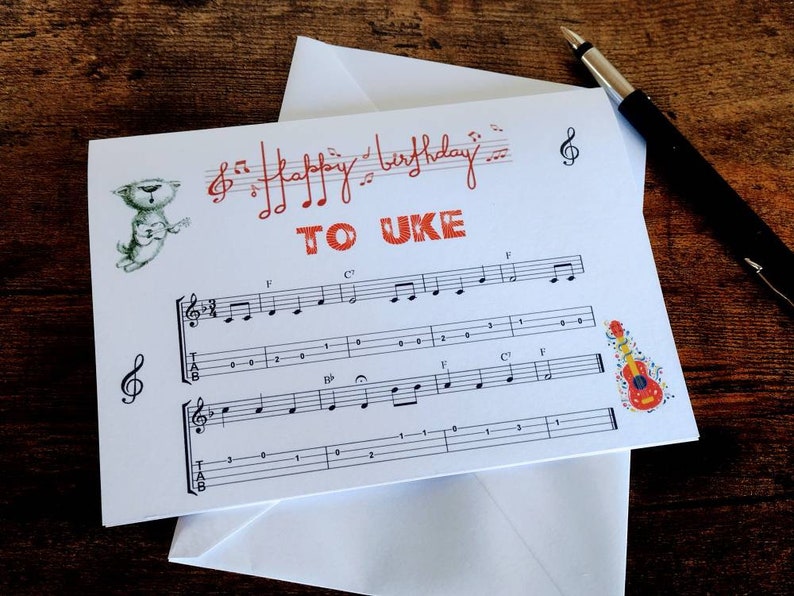 Happy birthday
TO UKE
F C7 F
3
4
T 0 0 2 0 1 0 0 0 2 0 3 1 0 0
A
B
B♭ F C7 F
T 3 0 1 0 2 1 1 0 1 3 1
A
B